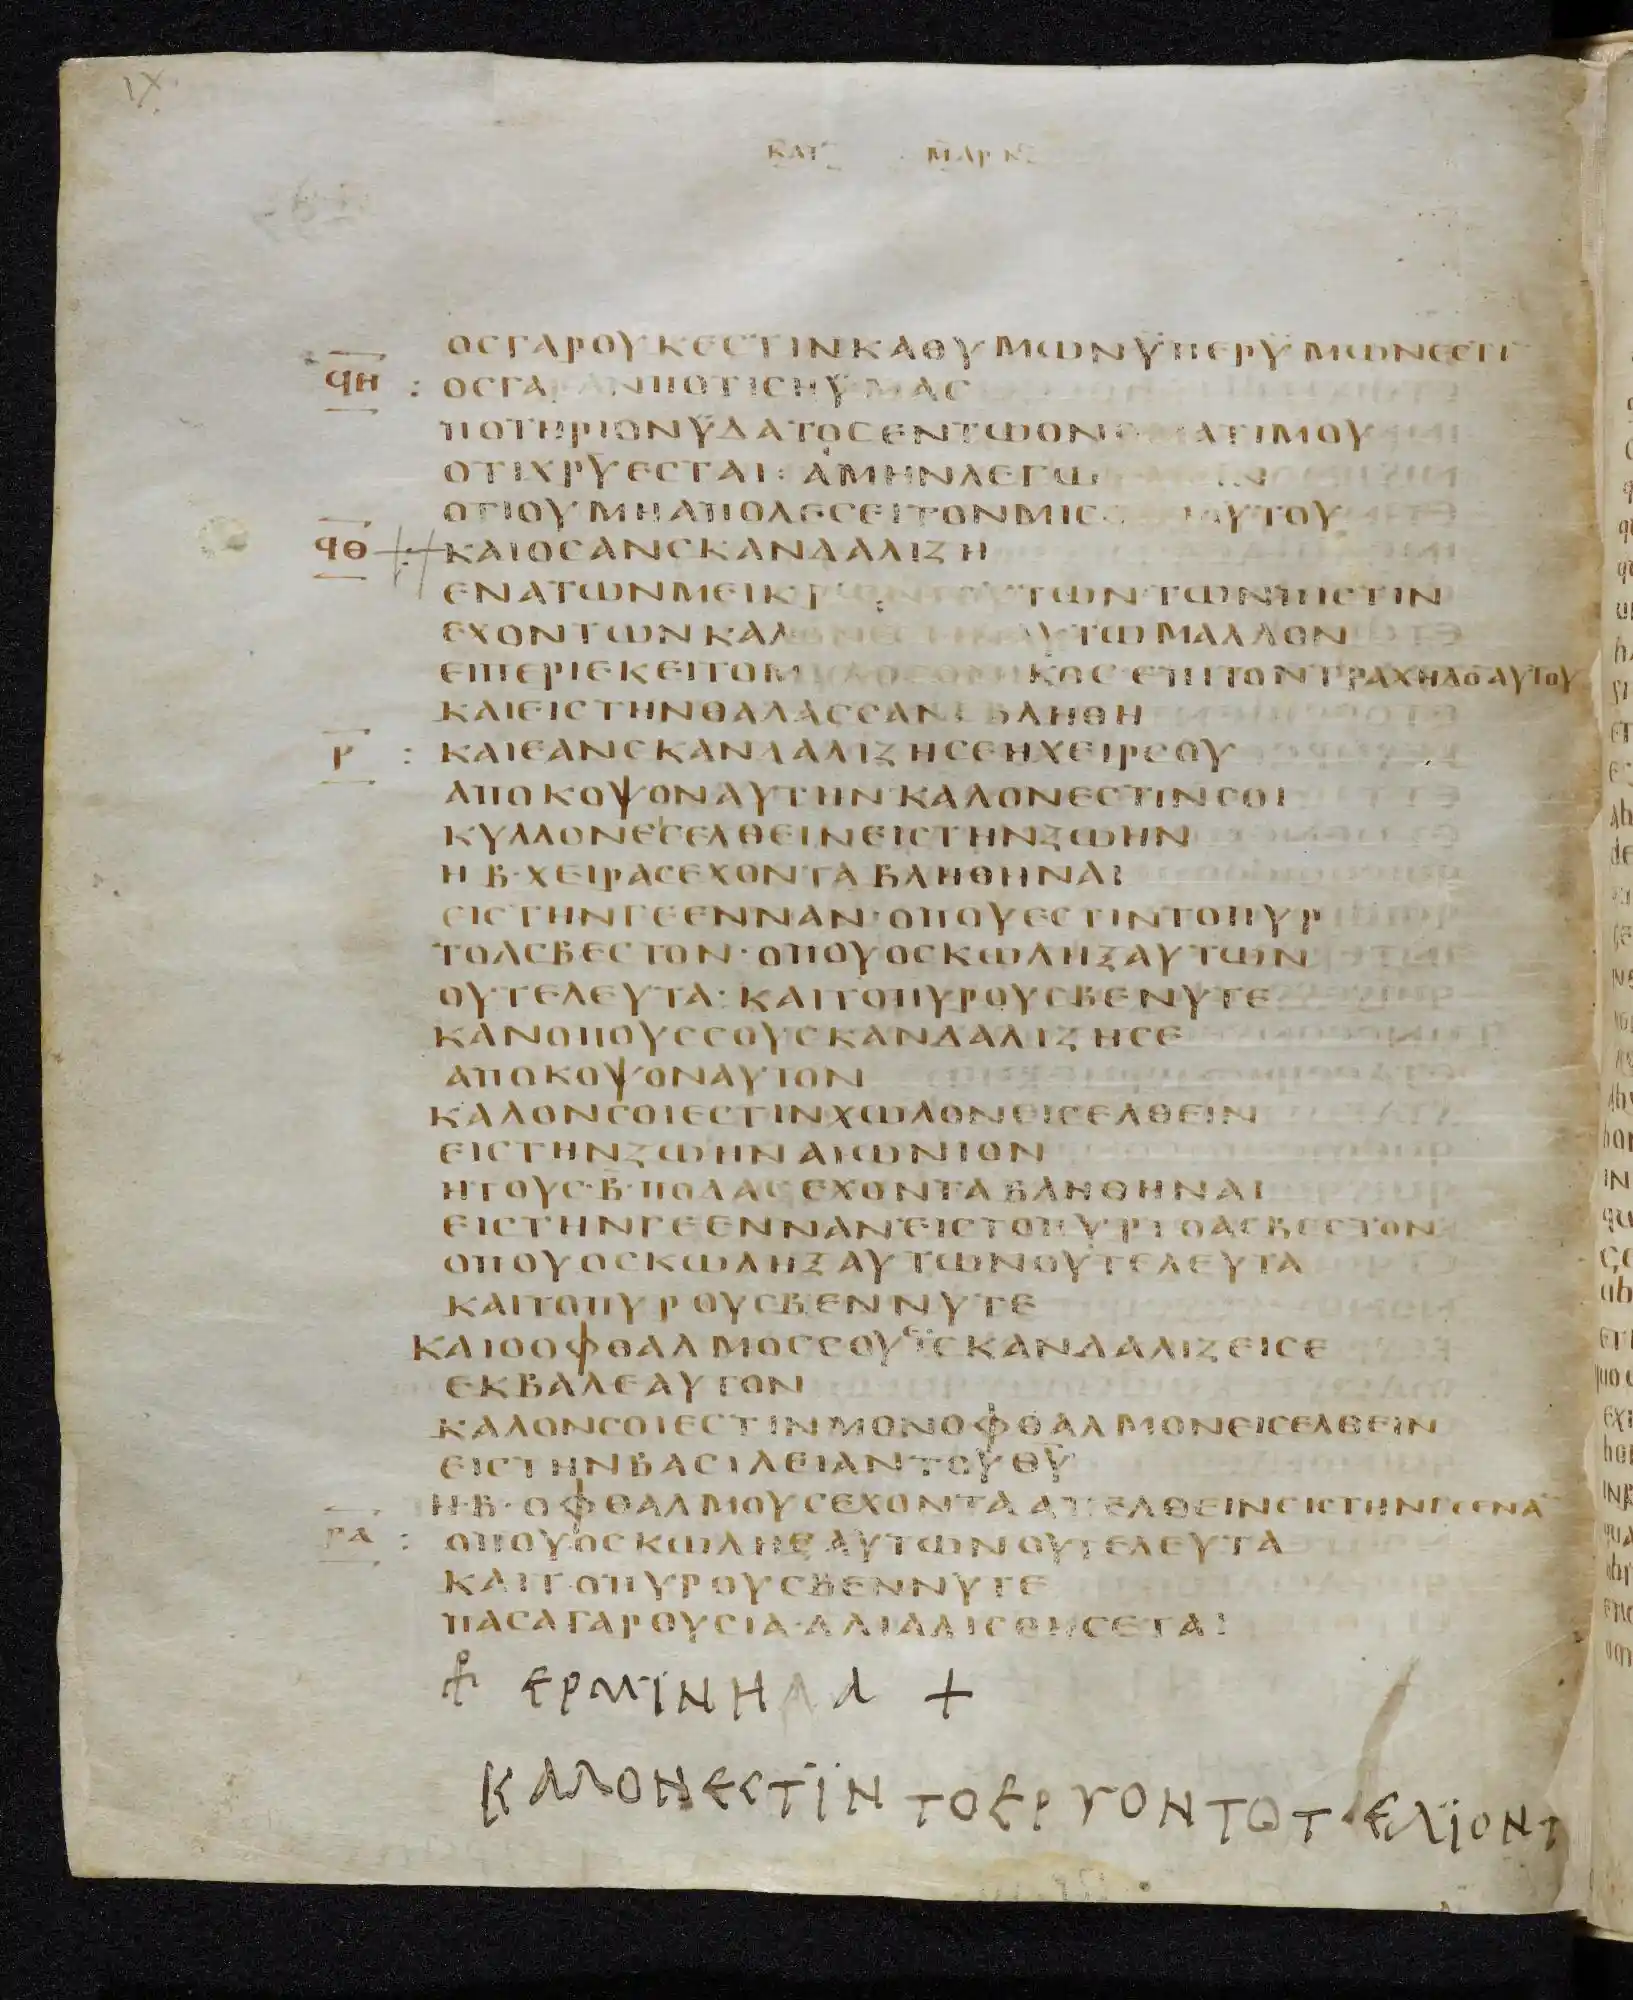 ΙΧ
ΚΑΤ ΜΑΡΚ
ΟСΓΑΡΟΥΚΕСΤΙΝΚΑΘΥΜΩΝΫΠΕΡΫΜΩΝΕСΤΙ
ϤΗ : ΟСΓΑΡΑΝΠΟΤΙСΗΫΜΑС
ΠΟΤΗΡΙΟΝΫΔΑΤΟСΕΝΤΩΟΝΟΜΑΤΙΜΟΥ
ΟΤΙΧΡΥΕСΤΑΙ : ΑΜΗΝΛΕΓΩ ΙΝ
ΟΤΙΟΥΜΗΑΠΟΛΕСΕΙΤΟΝΜΙС ΑΥΤΟΥ
ϤΘ : ΚΑΙΟСΑΝСΚΑΝΔΑΛΙΖΗ
ΕΝΑΤΩΝΜΕΙΚΡΩΝΤΟΥΤΩΝ·ΤΩΝΠΙСΤΙΝ
ΕΧΟΝΤΩΝΚΑΛΟΝΕСΤΙΝΑΥΤΩΜΑΛΛΟΝ
ΕΙΠΕΡΙΕΚΕΙΤΟΜΥΛΟСΟΝΙΚΟС·ΕΠΙΤΟΝΤΡΑΧΗΛΟ̄ΑΥΤΟΥ
ΚΑΙΕΙСΤΗΝΘΑΛΑССΑΝΕΒΛΗΘΗ
Ρ : ΚΑΙΕΑΝСΚΑΝΔΑΛΙΖΗСΕΗΧΕΙΡСΟΥ
ΑΠΟΚΟΨΟΝΑΥΤΗΝ·ΚΑΛΟΝΕСΤΙΝСΟΙ
ΚΥΛΛΟΝΕΙСΕΛΘΕΙΝΕΙСΤΗΝΖΩΗΝ
Η·Β·ΧΕΙΡΑСΕΧΟΝΤΑΒΛΗΘΗΝΑΙ
ΕΙСΤΗΝΓΕΕΝΝΑΝ·ΟΠΟΥΕСΤΙΝΤΟΠΥΡ
ΤΟΑСΒΕСΤΟΝ·ΟΠΟΥΟСΚΩΛΗΞΑΥΤΩΝ
ΟΥΤΕΛΕΥΤΑ·ΚΑΙΤΟΠΥΡΟΥСΒΕΝΥΤΕ
ΚΑΝΟΠΟΥССΟΥСΚΑΝΔΑΛΙΖΗСΕ
ΑΠΟΚΟΨΟΝΑΥΤΟΝ
ΚΑΛΟΝСΟΙΕСΤΙΝΧΩΛΟΝΕΙСΕΛΘΕΙΝ
ΕΙСΤΗΝΖΩΗΝΑΙΩΝΙΟΝ
ΗΤΟΥС·Β·ΠΟΔΑСΕΧΟΝΤΑΒΛΗΘΗΝΑΙ
ΕΙСΤΗΝΓΕΕΝΝΑΝ·ΕΙСΤΟΠΥΡΤΟΑСΒΕСΤΟΝ
ΟΠΟΥΟСΚΩΛΗΞΑΥΤΩΝΟΥΤΕΛΕΥΤΑ
ΚΑΙΤΟΠΥΡΟΥСΒΕΝΝΥΤΕ
ΚΑΙΟΟΦΘΑΛΜΟССΟΥΕΙСΚΑΝΔΑΛΙΖΕΙСΕ
ΕΚΒΑΛΕΑΥΤΟΝ
ΚΑΛΟΝСΟΙΕСΤΙΝΜΟΝΟΦΘΑΛΜΟΝΕΙСΕΛΘΕΙΝ
ΕΙСΤΗΝΒΑСΙΛΕΙΑΝΤΟΥΘ̄Ῡ
Η·Β·ΟΦΘΑΛΜΟΥСΕΧΟΝΤΑΑΠΕΛΘΕΙΝΕΙСΤΗΝΓΕΕΝᾹ
ΡΑ : ΟΠΟΥΟСΚΩΛΗΞΑΥΤΩΝΟΥΤΕΛΕΥΤΑ
ΚΑΙΤΟΠΥΡΟΥСΒΕΝΝΥΤΕ
ΠΑСΑΓΑΡΘΥСΙΑ·ΑΛΙΑΛΙСΘΗСΕΤΑΙ
ΕΡΜΙΝΗΑ Α +
ΚΑΛΟΝΕСΤΪΝ ΤΟΕΡΓΟΝΤΟΤΕΛΪΟΝΤ